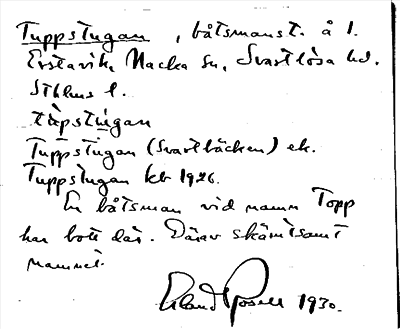 Tuppstugan, båtsmanst. å l.
Erstavik, Nacka sn, Svartlösa hd.
Sthlms l.
tùpstùgan
Tuppstugan (Svartbäcken) ek.
Tuppstugan kb 1926.
En båtsman vid namn Topp
har bott där. Därav skämtsamt
namnet.
Erland Rosell 1930.